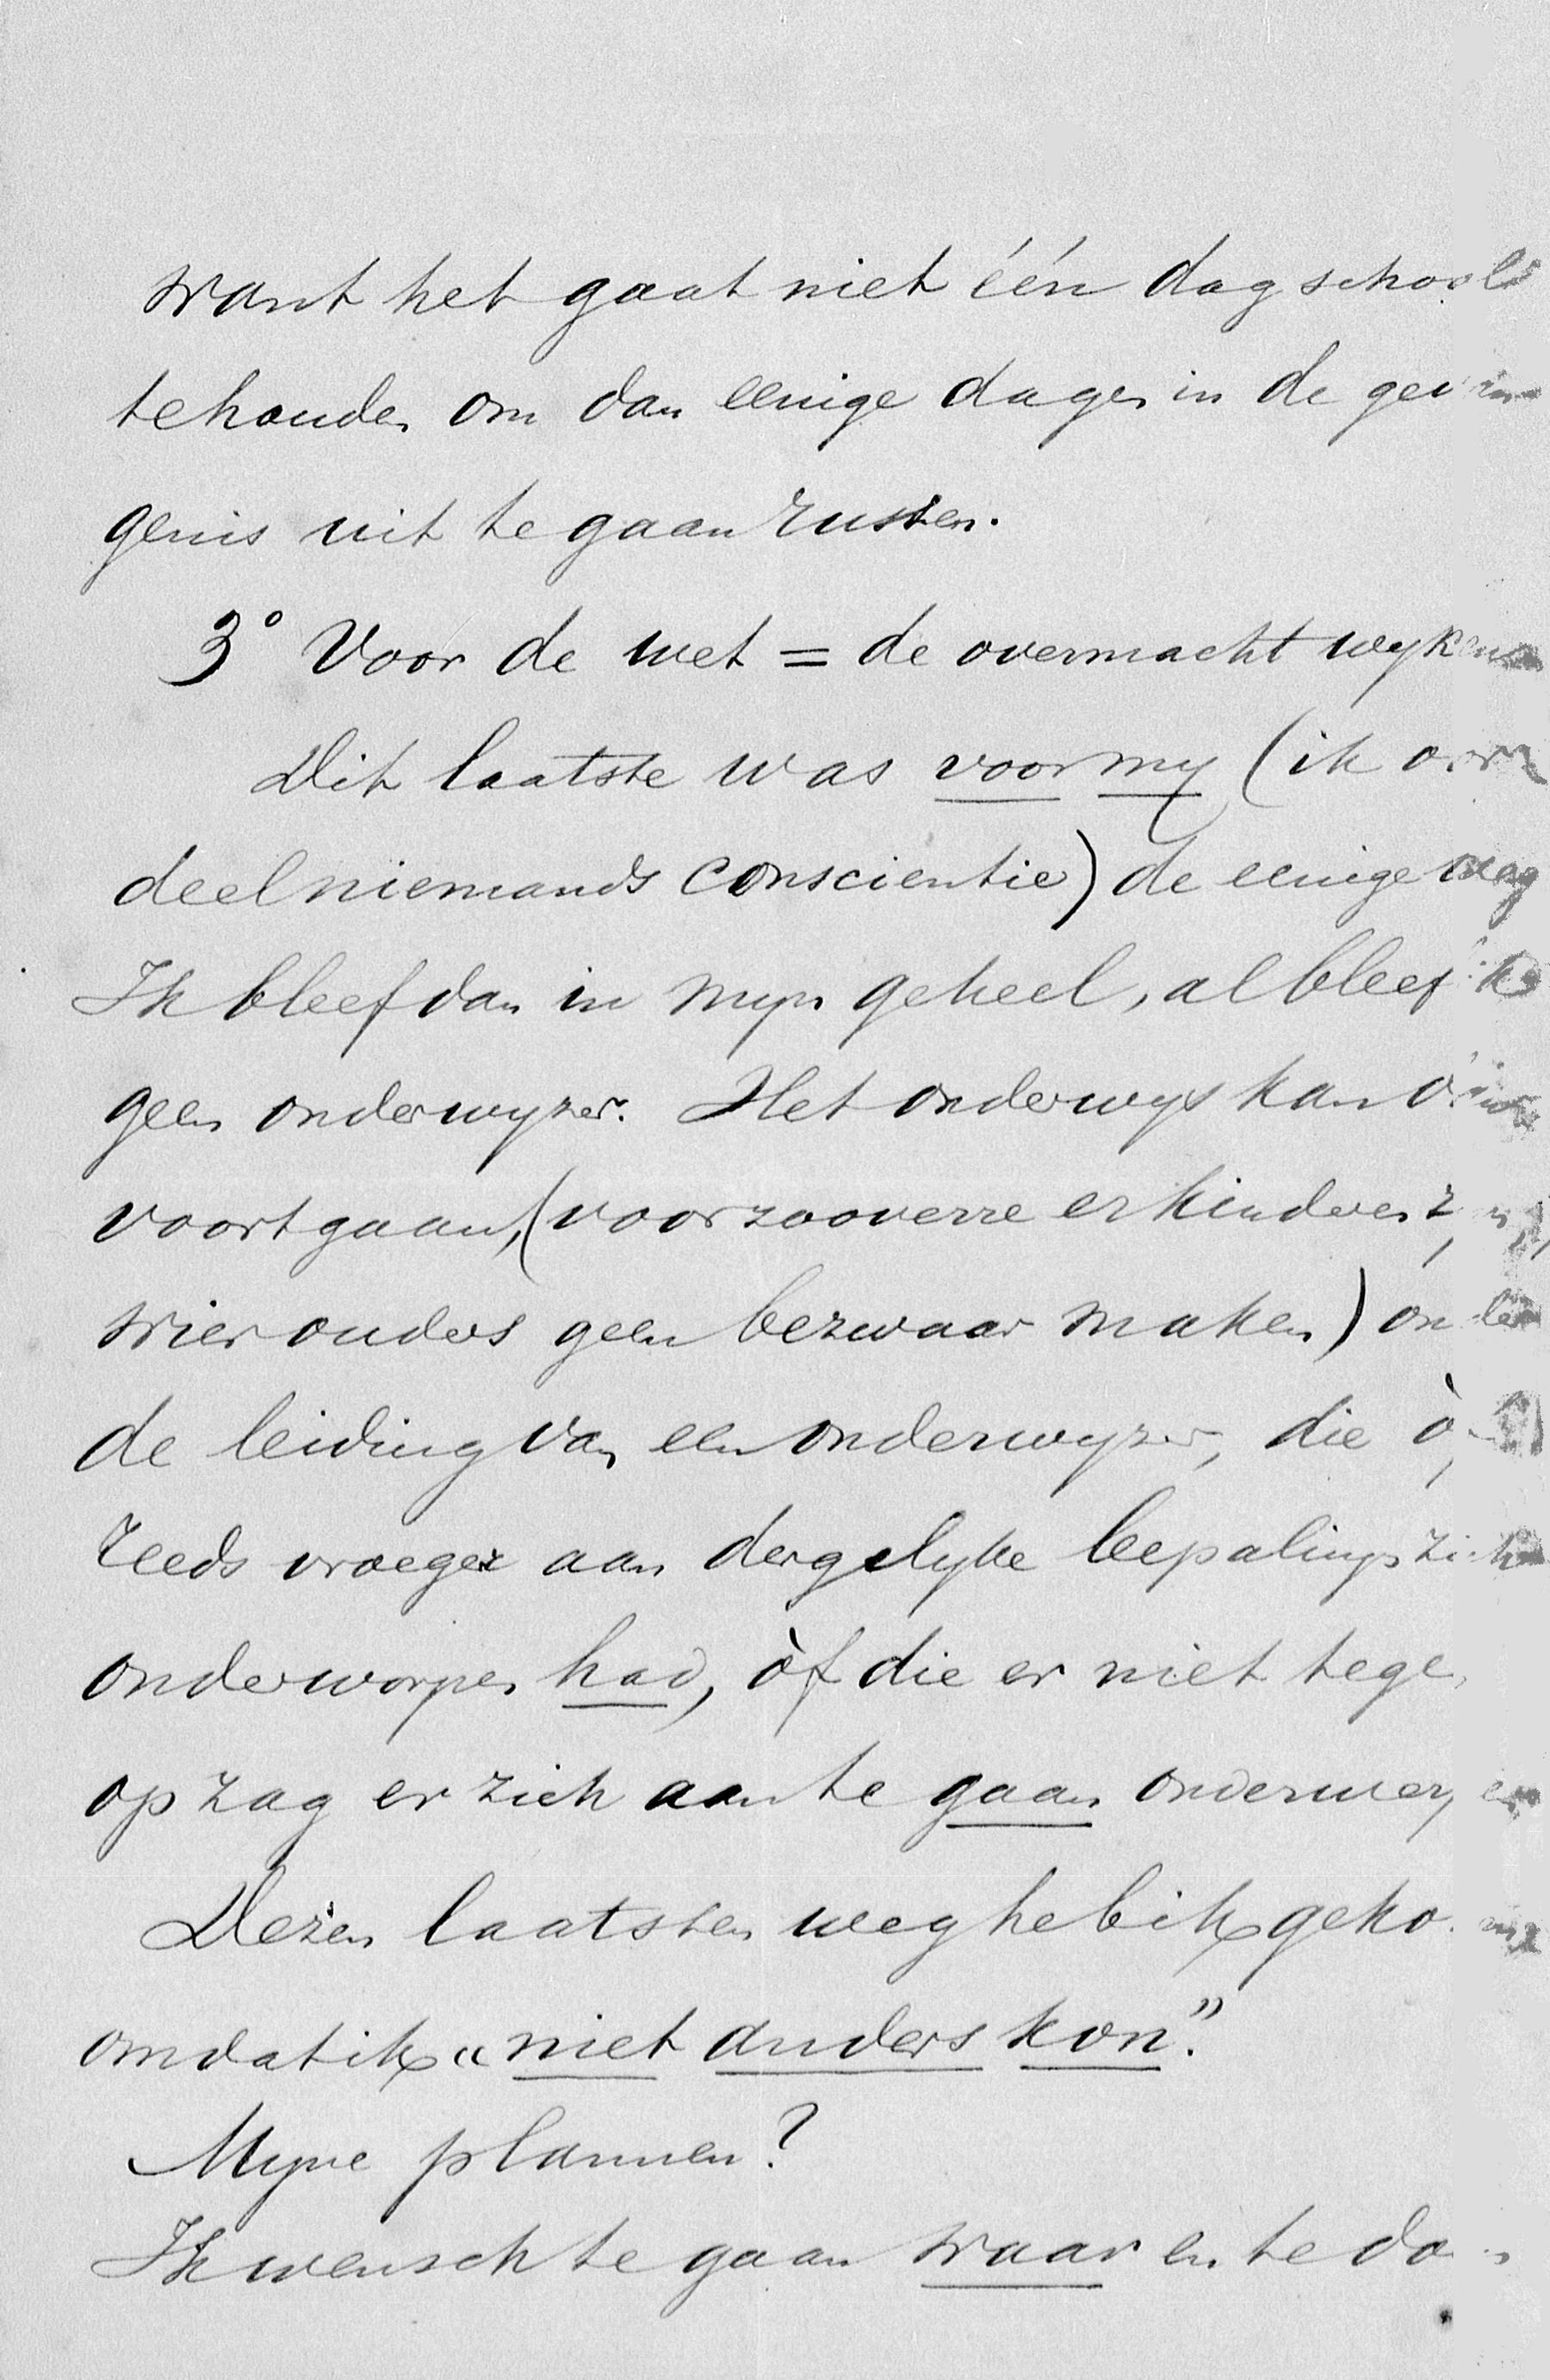 want het gaat niet één dag school
te houden om dan eenige dagen in de gevan
genis uit te gaan rusten.
3° Voor de wet = de overmacht wyken
Dit laatste was voor my (ik oor
deel niemands conscientie) de eenige weg
Ik bleef dan in myn geheel, al bleef ik
geen onderwyzer. Het onderwys kan
voortgaan, (voor zooverre er kinderen zyn,
wier ouders geen bezwaar maken) onder
de leiding van een onderwyzer, die òf
reeds vroeger aan dergelyke bepalingen zich
onderworpen had, òf die er niet tegen
op zag er zich aan te gaan onderwerpen
Dezen laatsten weg heb ik gekozen
omdat ik „niet anders kon."
Myne plannen?
Ik wensch te gaan waar en te doen